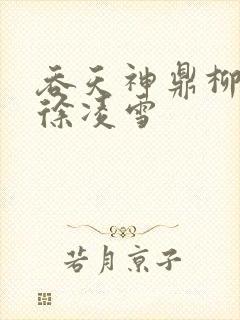 吞天神鼎柳
徐凌雪
若月京子